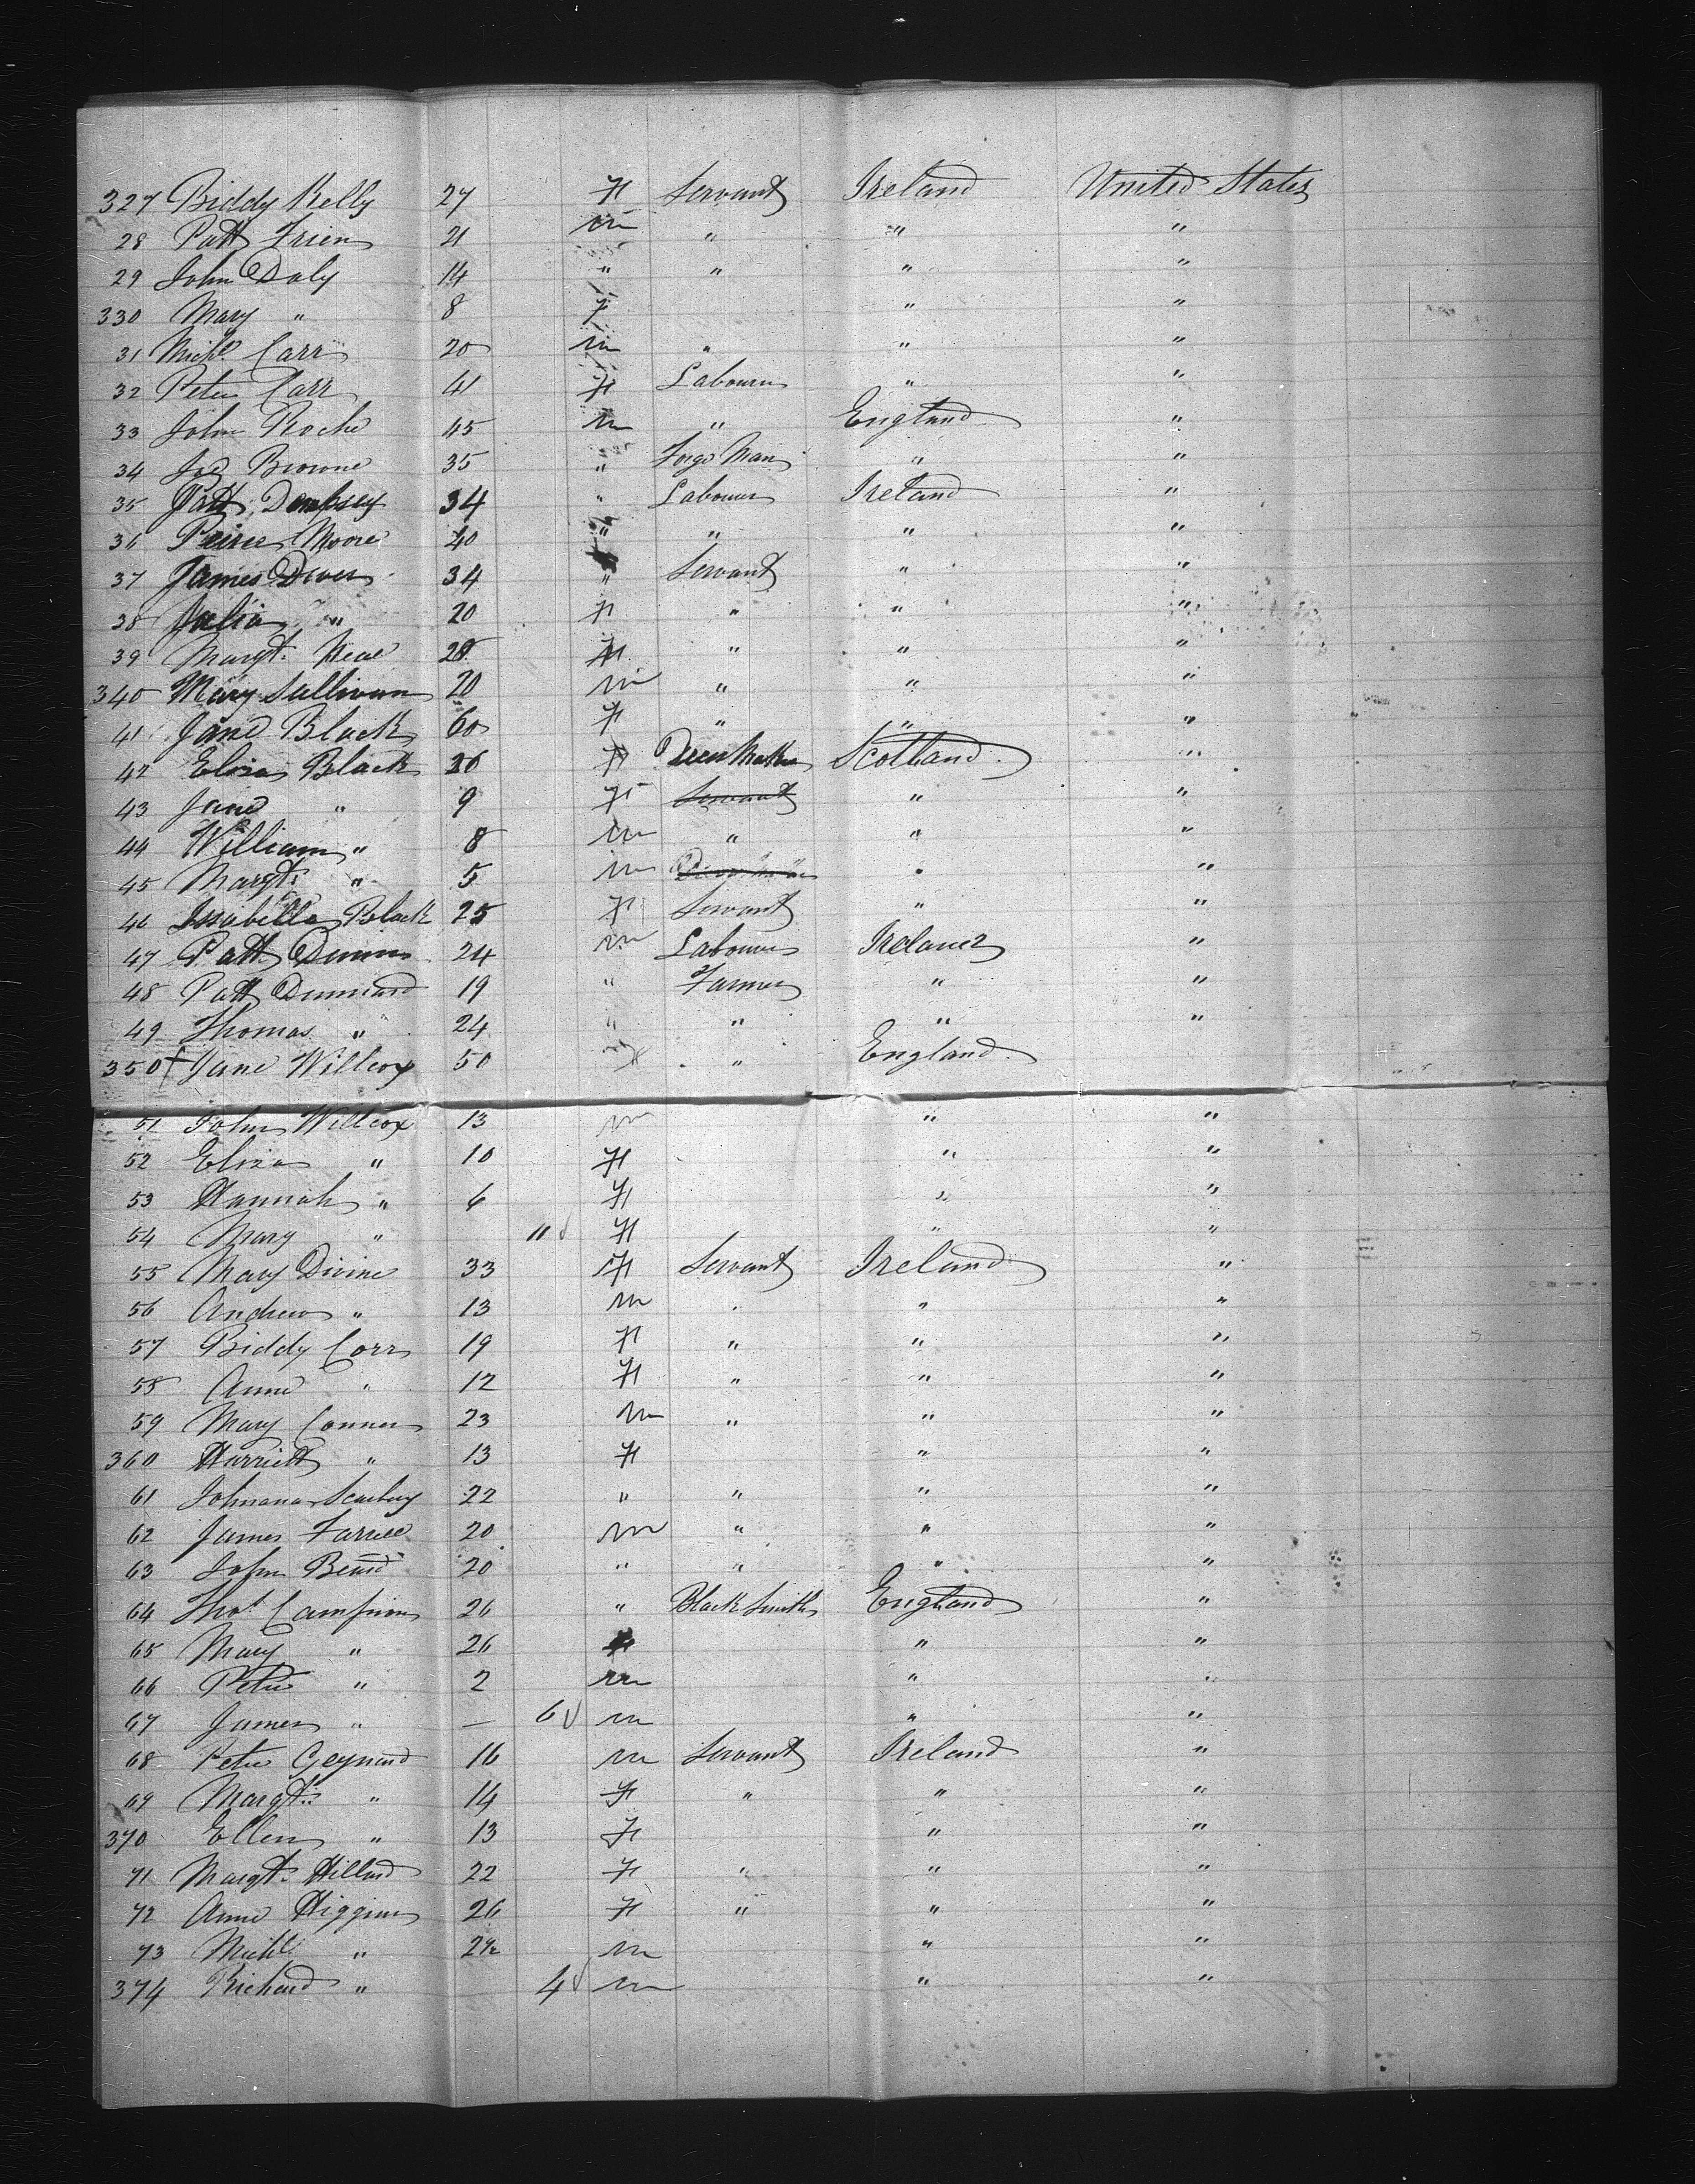 327 Biddy Kelly 27 F Servant Ireland United States
28 Patt 21 m " " "
29 John Daly 14 " " " "
330 Mary " 8 F " "
31 Michl. Carr 20 m " " "
32 Peter Carr 41 F Labourer " "
33 John Roche 45 m " England "
34 Jos Browne 35 " Forge Man " "
35 Patt Dempsey 34 " Labourer Ireland "
36 Peirce Moore 40 " " " "
37 James Dwer 34 " Servant " "
38 Julia " 20 F " " "
39 Margt. Neal 28 F " " "
340 Mary Sullivan 20 m " " "
41 Jane Black 60 F " " "
42 Eliza Black 30 F Dress Maker Scotland "
43 Jane " 9 F Servant " "
44 William " 8 m " " "
45 Margt. " 5 m " "
46 Issabella Black 25 F Servant " "
47 Patt Dunn 24 m Labourer Ireland "
48 Patt 19 " Farmer " "
49 Thomas " 24 " " " "
350 Jane Willcox 50 " England
51 John Willcox 13 m " "
52 Eliza " 10 F " "
53 Hannah " 6 F " "
54 Mary " 11 F " "
55 Mary Divine 33 F Servant Ireland "
56 Andrew " 13 m " " "
57 Biddy Corr 19 F " " "
58 Anne " 12 F " " "
59 Mary Conner 23 m " " "
360 Harriett " 13 F " "
61 Johnana 22 " " " "
62 James Farrell 20 m " " "
63 John 20 " " " "
64 Thos. Campion 26 " Black Smith England "
65 Mary " 26 F " "
66 Peter " 2 m " "
67 James " — 6 m " "
68 Peter 16 m Servant Ireland "
69 Margt. " 14 F " " "
370 Ellen " 13 F " "
71 Margt. Hillard 22 F " " "
72 Anne Higgins 26 F " " "
73 Michl. " 2½ m " "
374 Richard " 4 m " "